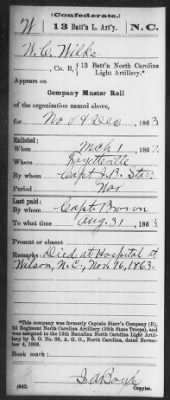 (Confederate.)
W 13 Batt'n L. Art'y. N.C.
W. C. Wilks
Co. B, 13 Batt'n North Carolina
Light Artillery.*
Appears on
Company Muster Roll
of the organization named above,
for Nov & Dec, 1863
Enlisted:
When Mch 1, 186
Where Fayetteville
By whom Capt J. B. Starr
Period War
Last paid:
By whom Capt. Brown
To what time Aug. 31, 1863
Present or absent
Remarks: Died at Hospital at
Wilson, N.C., Nov. 16, 1863.
*This company was formerly Captain Starr's Company (B),
2d Regiment North Carolina Artillery (36th State Troops), and
was assigned to the 13th Battalion North Carolina Light Artil-
lery by S. O. No. 26, A. G. O., North Carolina, dated Novem-
ber 4, 1863.
Book mark:
(642) Copyist.